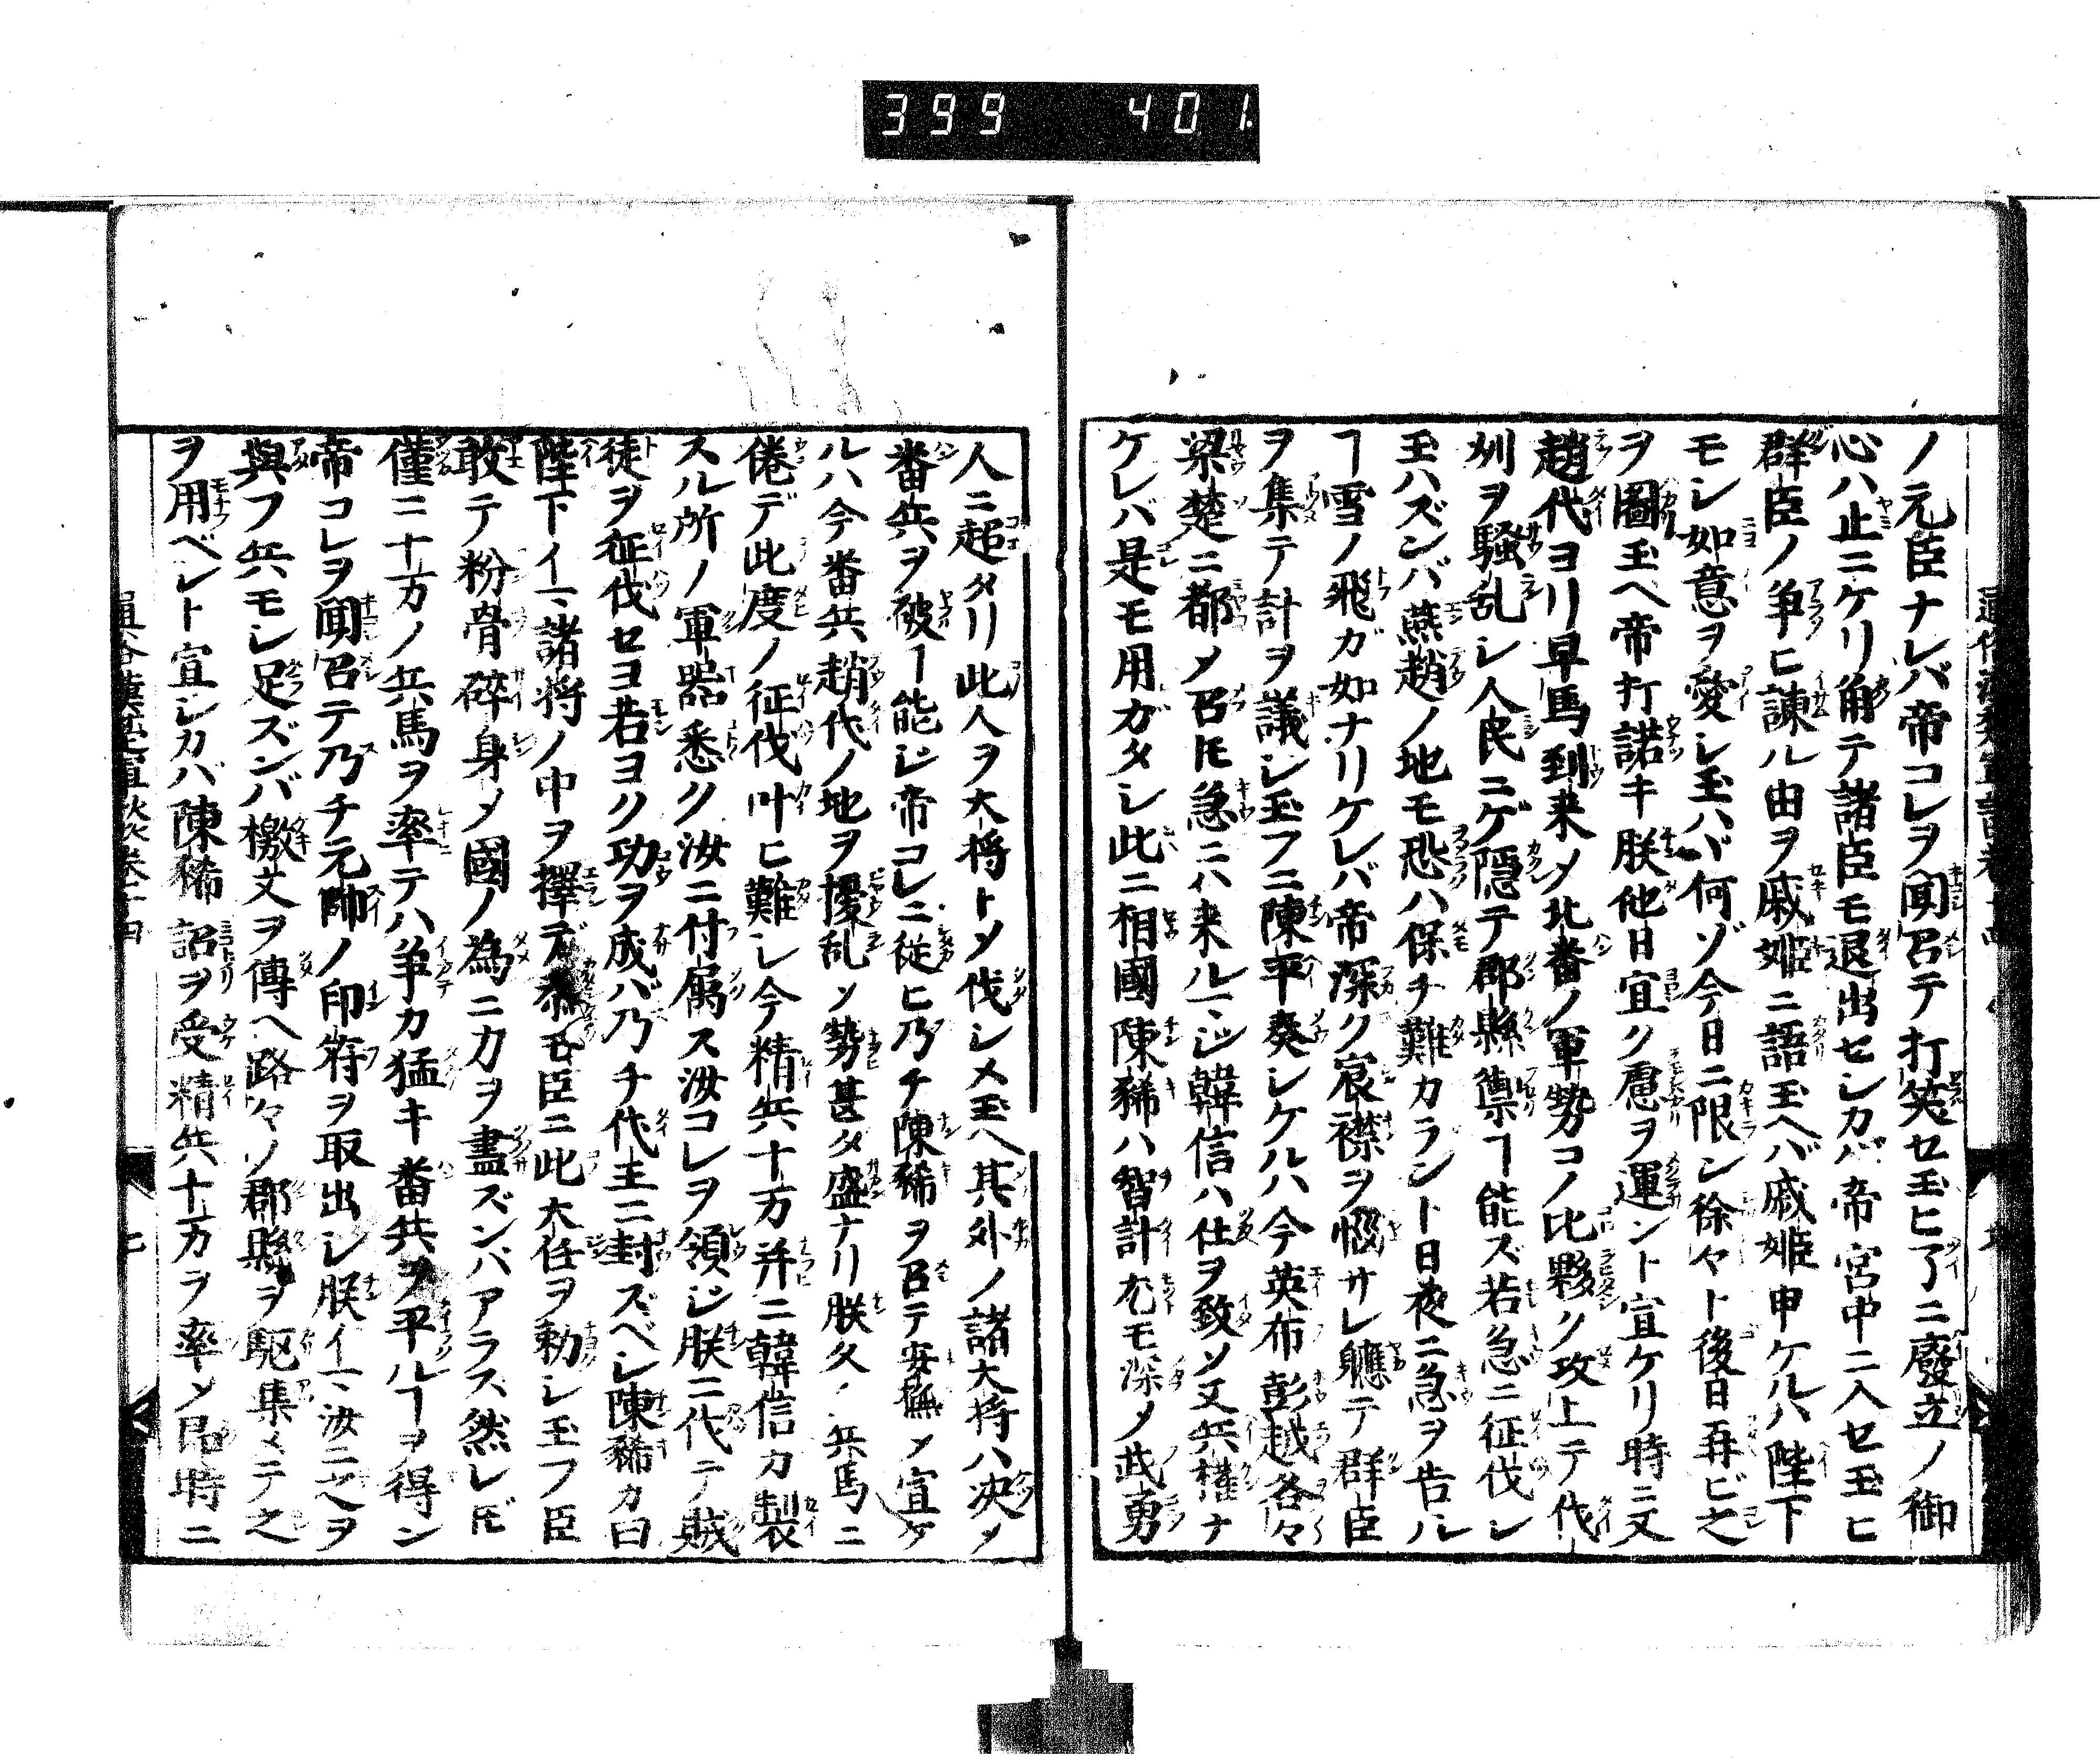 399 401.
ノ元臣ナレバ帝コレヲ聞召テ打笑セ玉ヒ了ニ廢立ノ御
心ハ止ニケリ角テ諸臣モ退出セシカバ帝宮中ニ入セ玉ヒ
群臣ノ争ヒ諫ル由ヲ戚姫ニ語玉ヘバ戚姫申ケルハ陛下
モシ如意ヲ愛シ玉ハバ何ゾ今日ニ限ン徐々ト後日再ビ之
ヲ圖玉ヘ帝打諾キ朕他日宜ク慮ヲ運ント宣ケリ時ニ又
趙代ヨリ早馬到来メ北番ノ軍勢コノ比夥ク攻上テ代
州ヲ騒乱シ人民ニゲ隠テ郡縣禦ヿ能ズ若急ニ征伐シ
玉ハズンバ燕趙ノ地モ恐ハ保チ難カラント日夜ニ急ヲ告ル
ヿ雪ノ飛ガ如ナリケレバ帝深ク宸襟ヲ惱サレ軈テ群臣
ヲ集テ計ヲ議シ玉フニ陳平奏シケルハ今英布彭越各々
梁楚ニ都メ召𪜈急ニハ来ルヿシ韓信ハ仕ヲ致ソ又兵權ナ
ケレバ是モ用ガタシ此ニ相國陳豨ハ智計尤モ深メ武勇
人ニ超タリ此人ヲ大将トソ伐シメ玉ヘ其外ノ諸大将ハ决メ
番兵ヲ破ヿ能ジ帝コレニ従ヒ乃チ陳豨ヲ召テ安撫メ宣ケ
ルハ今番兵趙代ノ地ヲ擾乱ソ勢甚タ盛ナリ朕久ク兵馬ニ
倦デ此度ノ征伐叶ヒ難シ今精兵十万并ニ韓信カ製
スル所ノ軍器悉ク汝ニ付属ス汝コレヲ領ジ朕ニ代テ賊
徒ヲ征伐セヨ若ヨク功ヲ成バ乃チ代王ニ封ズベシ陳豨カ曰
陛下イマ諸将ノ中ヲ擇デ忝モ臣ニ此大任ヲ勅シ玉フ臣
敢テ粉骨碎身メ國ノ為ニ力ヲ盡ズンバアラス然レ𪜈
僅ニ十万ノ兵馬ヲ率テハ争カ猛キ番兵ヲ平ルヿヲ得ン
帝コレヲ聞召テ乃チ元帥ノ印符ヲ取出シ朕イマ汝ニ之ヲ
與フ兵モシ足ズンバ檄文ヲ傳ヘ路々ノ郡縣ヲ駆集メテ之
ヲ用ベシト宣シカバ陳豨詔ヲ受精兵十万ヲ率メ即時ニ